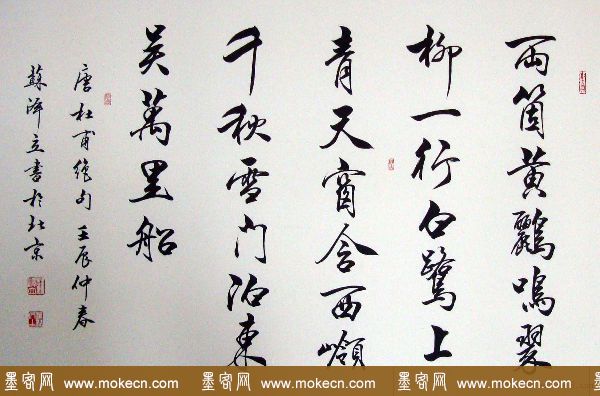 兩箇黃鸝鳴翠
柳一行白鷺上
青天窗含西嶺
千秋雪門泊東
吳萬里船
唐杜甫絕句 壬辰仲春
蘇澤立書於北京
墨客网 www.mokecn.com 墨客网 www.mokecn.com 墨客网 www.mokecn.com